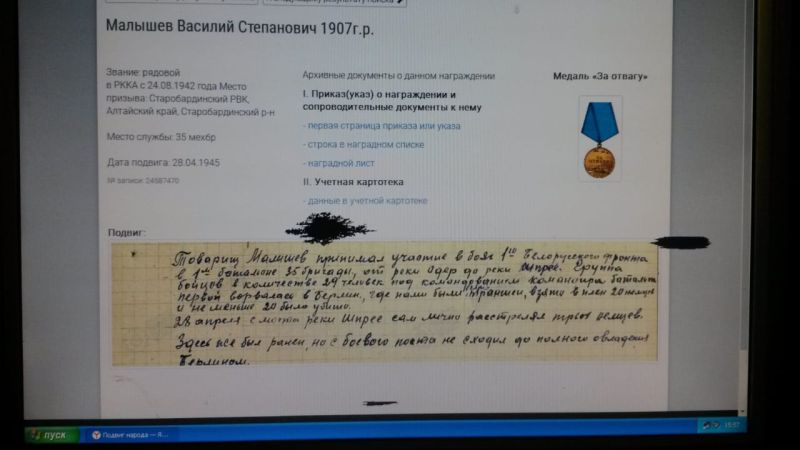 Малышев Василий Степанович 1907г.р.
Звание: рядовой
в РККА с 24.08.1942 года Место
призыва: Старобардинский РВК,
Алтайский край, Старобардинский р-н
Место службы: 35 мехбр
Дата подвига: 28.04.1945
№ записи: 24587470
Архивные документы о данном награждении
I. Приказ(указ) о награждении и
сопроводительные документы к нему
- первая страница приказа или указа
- строка в наградном списке
- наградной лист
II. Учетная картотека
- данные в учетной картотеке
Медаль «За отвагу»
Подвиг:
Товарищ Малышев принимал участие в боях 1го Белорусского фронта
в 1ом батальоне 35 бригады, от реки Одер до реки Шпрее. Группа
бойцов в количестве 24 человек под командованием командира батальона
первой ворвалась в Берлин, где нами были траншеи, взято в плен 20 немцев
и не меньше 20 было убито.
28 апреля с моста реки Шпрее сам лично расстрелял трёх немцев.
Здесь же был ранен, но с боевого поста не сходил до полного овладения
Берлином.
пуск
Подвиг народа — Я...
15:57